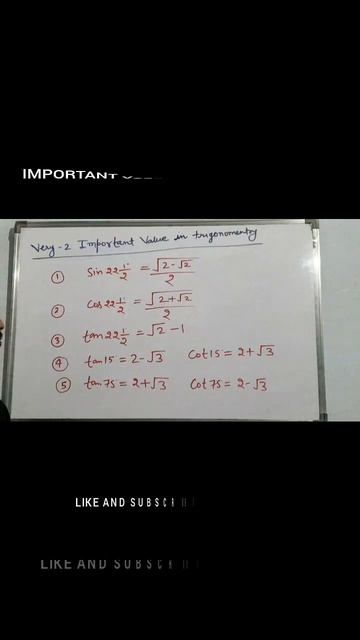 IMPORTANT
Very-2 Important Value in trigonometry
① Sin 22 1/2° = √(2-√2)/2
② Cos 22 1/2 = √(2+√2)/2
③ tan 22 1/2 = √2 - 1
④ tan 15 = 2-√3 Cot 15 = 2+√3
⑤ tan 75 = 2+√3 Cot 75 = 2-√3
LIKE AND SUBSCRI
LIKE AND SUBSCRI